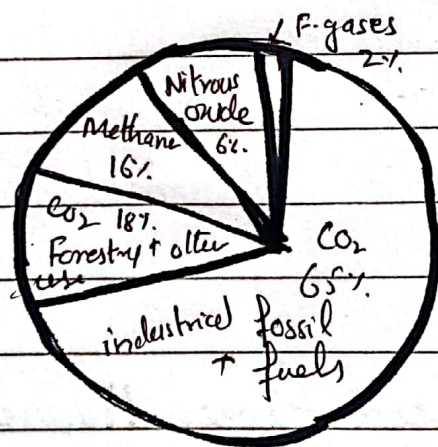 F-gases
2%.
Nitrous
oxide
6%.
Methane
16%.
CO2 18%.
Forestry + other
use
CO2
65%.
industrial fossil
+ fuels